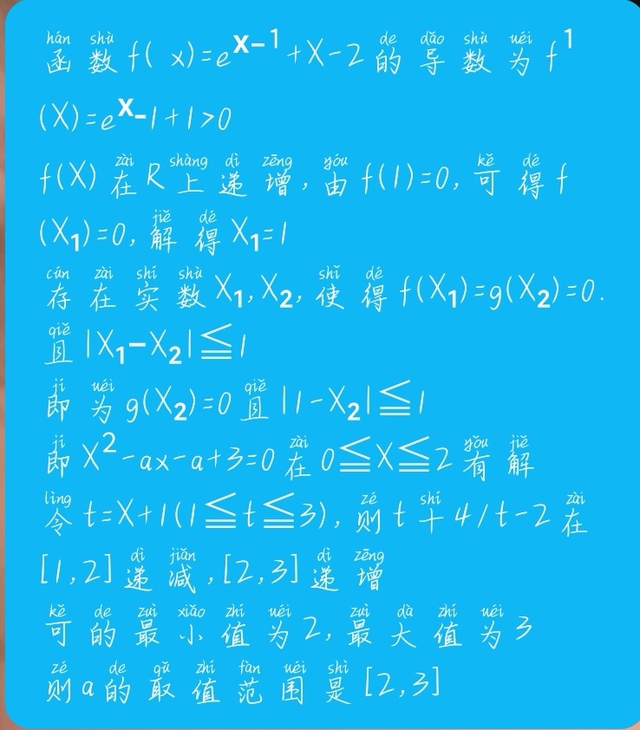 hán shù de dǎo shù uéi
函数f( x)=e^x-1+X-2的导数为f¹
(X)=e^x-1+1>0
zài shàng dì zēng yóu kě dé
f(X)在R上递增,由f(1)=0,可得f
jiě dé
(X₁)=0,解得X₁=1
cún zài shí shù shǐ dé
存在实数X₁,X₂,使得f(X₁)=g(X₂)=0.
qiě
且|X₁-X₂|≦1
jí uéi qiě
即为g(X₂)=0且|1-X₂|≦1
jí zài yǒu jiě
即X²-ax-a+3=0在0≦X≦2有解
lìng zé shí zài
令t=X+1(1≦t≦3),则t十4/t-2在
dì jiǎn dì zēng
[1,2]递减,[2,3]递增
kě de zuì xiǎo zhí uéi zuì dà zhí uéi
可的最小值为2,最大值为3
zé de qǔ zhí fàn uéi shì
则a的取值范围是[2,3]